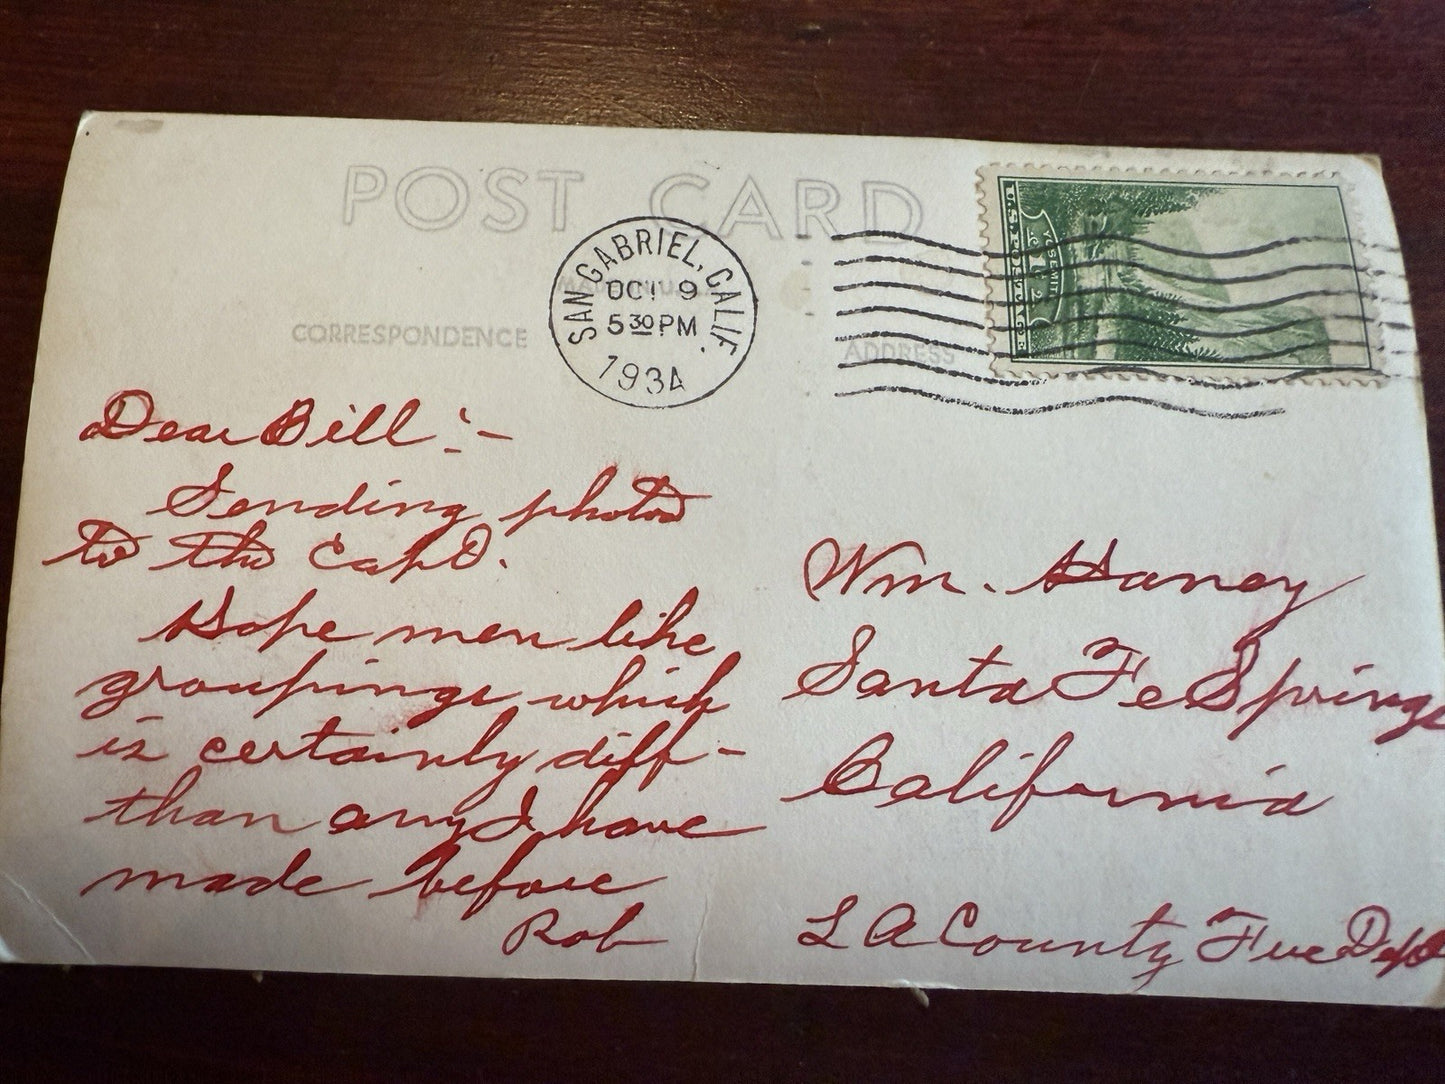 POST CARD
SAN GABRIEL, CALIF.
OCT 9
5 30 PM
1934
U.S. POSTAGE
YOSEMITE
1c
CORRESPONDENCE
ADDRESS
Dear Bill :-
Sending photos
to the Capt.
Hope men like
groupings which
is certainly diff-
than any I have
made before
Rob
Wm. Haney
Santa Fe Springs
California
L A County Fire Dept